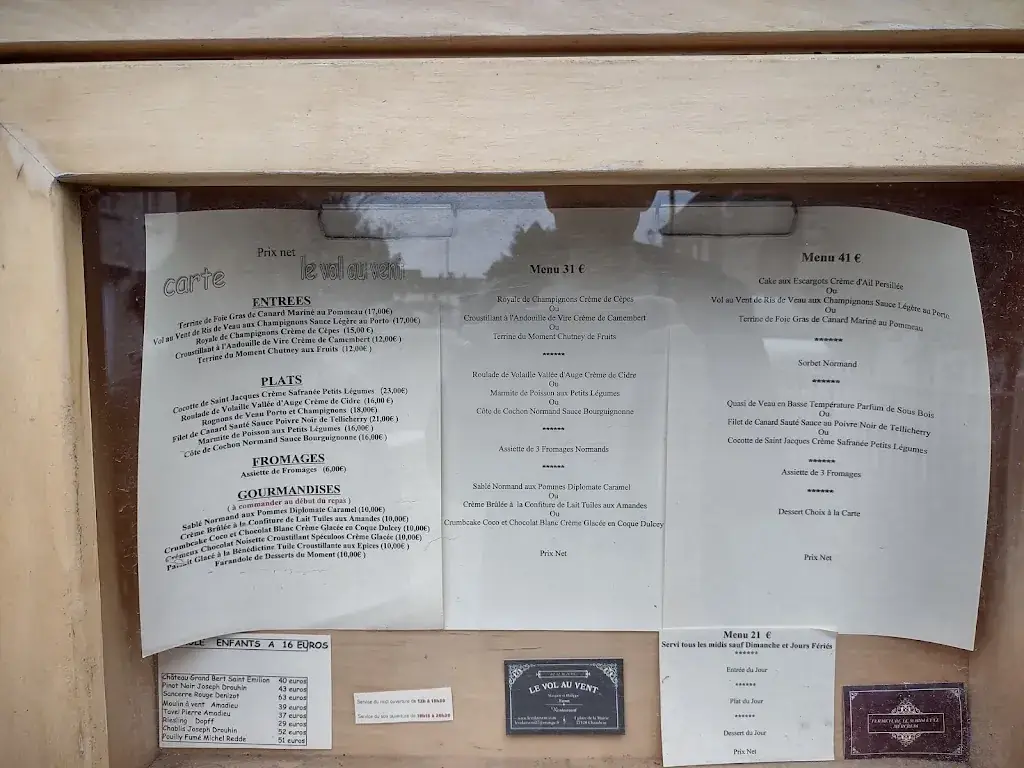 Prix net
carte
le vol au vent
ENTREES
Terrine de Foie Gras de Canard Mariné au Pommeau (17,00€)
Vol au Vent de Ris de Veau aux Champignons Sauce Légère au Porto (17,00€)
Royale de Champignons Crème de Cèpes (15,00 €)
Croustillant à l'Andouille de Vire Crème de Camembert (12,00€ )
Terrine du Moment Chutney aux Fruits (12,00€ )
PLATS
Cocotte de Saint Jacques Crème Safranée Petits Légumes (23,00€)
Roulade de Volaille Vallée d'Auge Crème de Cidre (16,00 €)
Rognons de Veau Porto et Champignons (18,00€)
Filet de Canard Sauté Sauce Poivre Noir de Tellicherry (21,00€ )
Marmite de Poisson aux Petits Légumes (16,00€ )
Côte de Cochon Normand Sauce Bourguignonne (16,00€ )
FROMAGES
Assiette de Fromages (6,00€)
GOURMANDISES
( à commander au début du repas )
Sablé Normand aux Pommes Diplomate Caramel (10,00€)
Crème Brûlée à la Confiture de Lait Tuiles aux Amandes (10,00€)
Crumbcake Coco et Chocolat Blanc Crème Glacée en Coque Dulcey (10,00€)
Crémeux Chocolat Noisette Croustillant Spéculoos Crème Glacée (10,00€)
Parfait Glacé à la Bénédictine Tuile Croustillante aux Epices (10,00€ )
Farandole de Desserts du Moment (10,00€ )
Menu 31 €
Royale de Champignons Crème de Cèpes
Ou
Croustillant à l'Andouille de Vire Crème de Camembert
Ou
Terrine du Moment Chutney de Fruits
******
Roulade de Volaille Vallée d'Auge Crème de Cidre
Ou
Marmite de Poisson aux Petits Légumes
Ou
Côte de Cochon Normand Sauce Bourguignonne
******
Assiette de 3 Fromages Normands
******
Sablé Normand aux Pommes Diplomate Caramel
Ou
Crème Brûlée à la Confiture de Lait Tuiles aux Amandes
Ou
Crumbcake Coco et Chocolat Blanc Crème Glacée en Coque Dulcey
Prix Net
Menu 41 €
Cake aux Escargots Crème d'Ail Persillée
Ou
Vol au Vent de Ris de Veau aux Champignons Sauce Légère au Porto
Ou
Terrine de Foie Gras de Canard Mariné au Pommeau
******
Sorbet Normand
******
Quasi de Veau en Basse Température Parfum de Sous Bois
Ou
Filet de Canard Sauté Sauce au Poivre Noir de Tellicherry
Ou
Cocotte de Saint Jacques Crème Safranée Petits Légumes
******
Assiette de 3 Fromages
******
Dessert Choix à la Carte
Prix Net
ENFANTS A 16 EUROS
Château Grand Bert Saint Emilion 40 euros
Pinot Noir Joseph Drouhin 43 euros
Sancerre Rouge Denizot 63 euros
Moulin à vent Amadieu 39 euros
Tavel Pierre Amadieu 37 euros
Riesling Dopff 29 euros
Chablis Joseph Drouhin 52 euros
Pouilly Fumé Michel Redde 51 euros
Service du midi ouverture de 12h à 13h30
Service du soir ouverture de
LE VOL AU VENT
Restaurant
Menu 21 €
Servi tous les midis sauf Dimanche et Jours Fériés
******
Entrée du Jour
******
Plat du Jour
******
Dessert du Jour
Prix Net
FERMETURE LE MARDI ET LE
MERCREDI